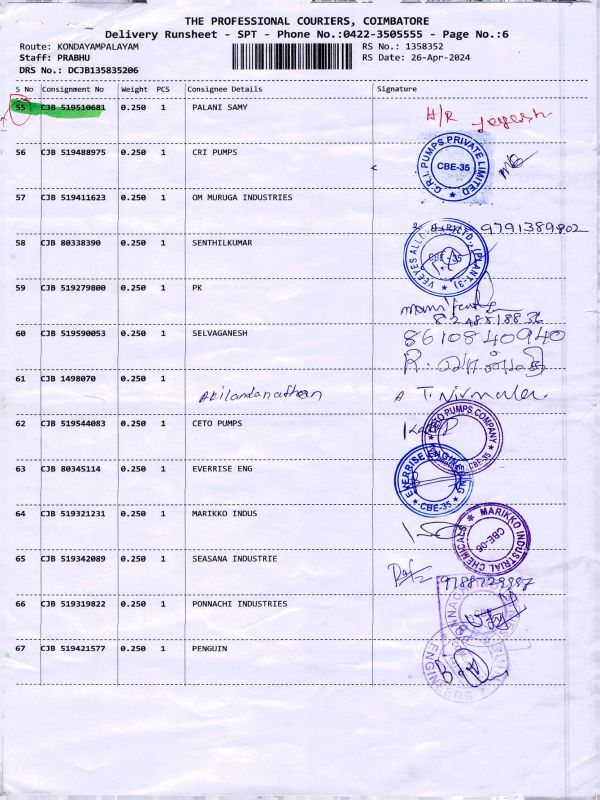 THE PROFESSIONAL COURIERS, COIMBATORE
Delivery Runsheet - SPT - Phone No.:0422-3505555 - Page No.:6
Route: KONDAYAMPALAYAM RS No.: 1358352
Staff: PRABHU RS Date: 26-Apr-2024
DRS No.: DCJB135835206
S No Consignment No Weight PCS Consignee Details Signature
55 CJB 519510681 0.250 1 PALANI SAMY H/R
56 CJB 519488975 0.250 1 CRI PUMPS
C.R.I. PUMPS PRIVATE LIMITED CBE-35
57 CJB 519411623 0.250 1 OM MURUGA INDUSTRIES
9791389902
58 CJB 80338390 0.250 1 SENTHILKUMAR
CBE - 35
59 CJB 519279800 0.250 1 PK
8248818836
60 CJB 519590053 0.250 1 SELVAGANESH 8610840940
61 CJB 1498070 0.250 1
Akilandanathan T. Nirmala
62 CJB 519544083 0.250 1 CETO PUMPS
CETO PUMPS COMPANY CBE-35
63 CJB 80345114 0.250 1 EVERRISE ENG
EVERRISE ENGINEERING CBE-35
64 CJB 519321231 0.250 1 MARIKKO INDUS
MARIKKO INDUSTRIAL CHEMICALS CBE-06
65 CJB 519342089 0.250 1 SEASANA INDUSTRIE
66 CJB 519319822 0.250 1 PONNACHI INDUSTRIES
67 CJB 519421577 0.250 1 PENGUIN
ENGINEERS